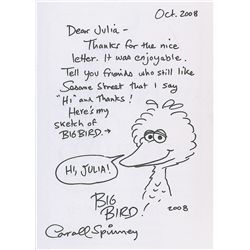 Oct. 2008
Dear Julia –
Thanks for the nice
letter. It was enjoyable.
Tell you friends who still like
Sesame Street that I say
"Hi" and Thanks!
Here's my
sketch of
BIG BIRD. →
HI, JULIA!
BIG
BIRD!
2008
Carroll Spinney